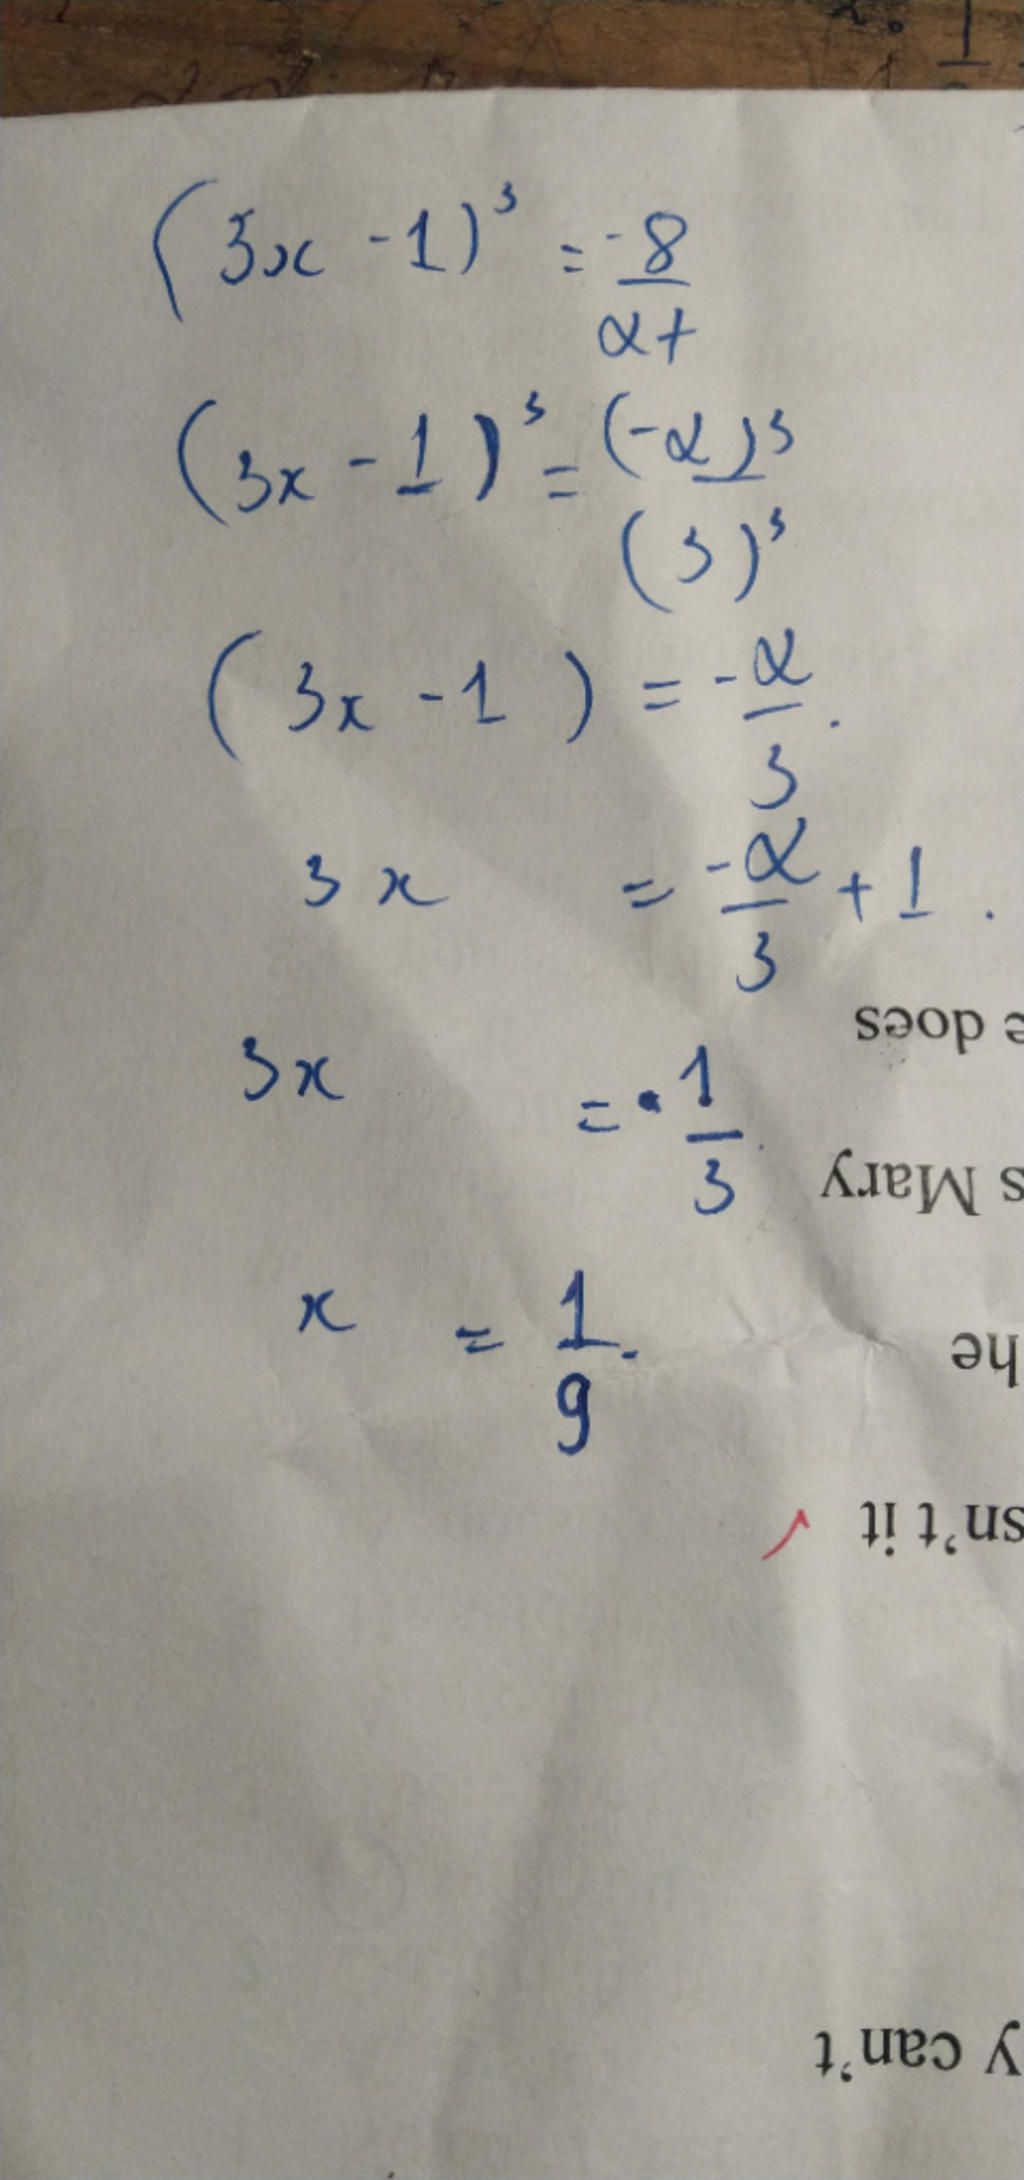 (3x - 1)³ = -8/27
(3x - 1)³ = (-2)³/(3)³
(3x - 1) = -2/3.
3x = -2/3 + 1.
e does
3x = 1/3
s Mary
x = 1/9.
he
sn't it
y can't